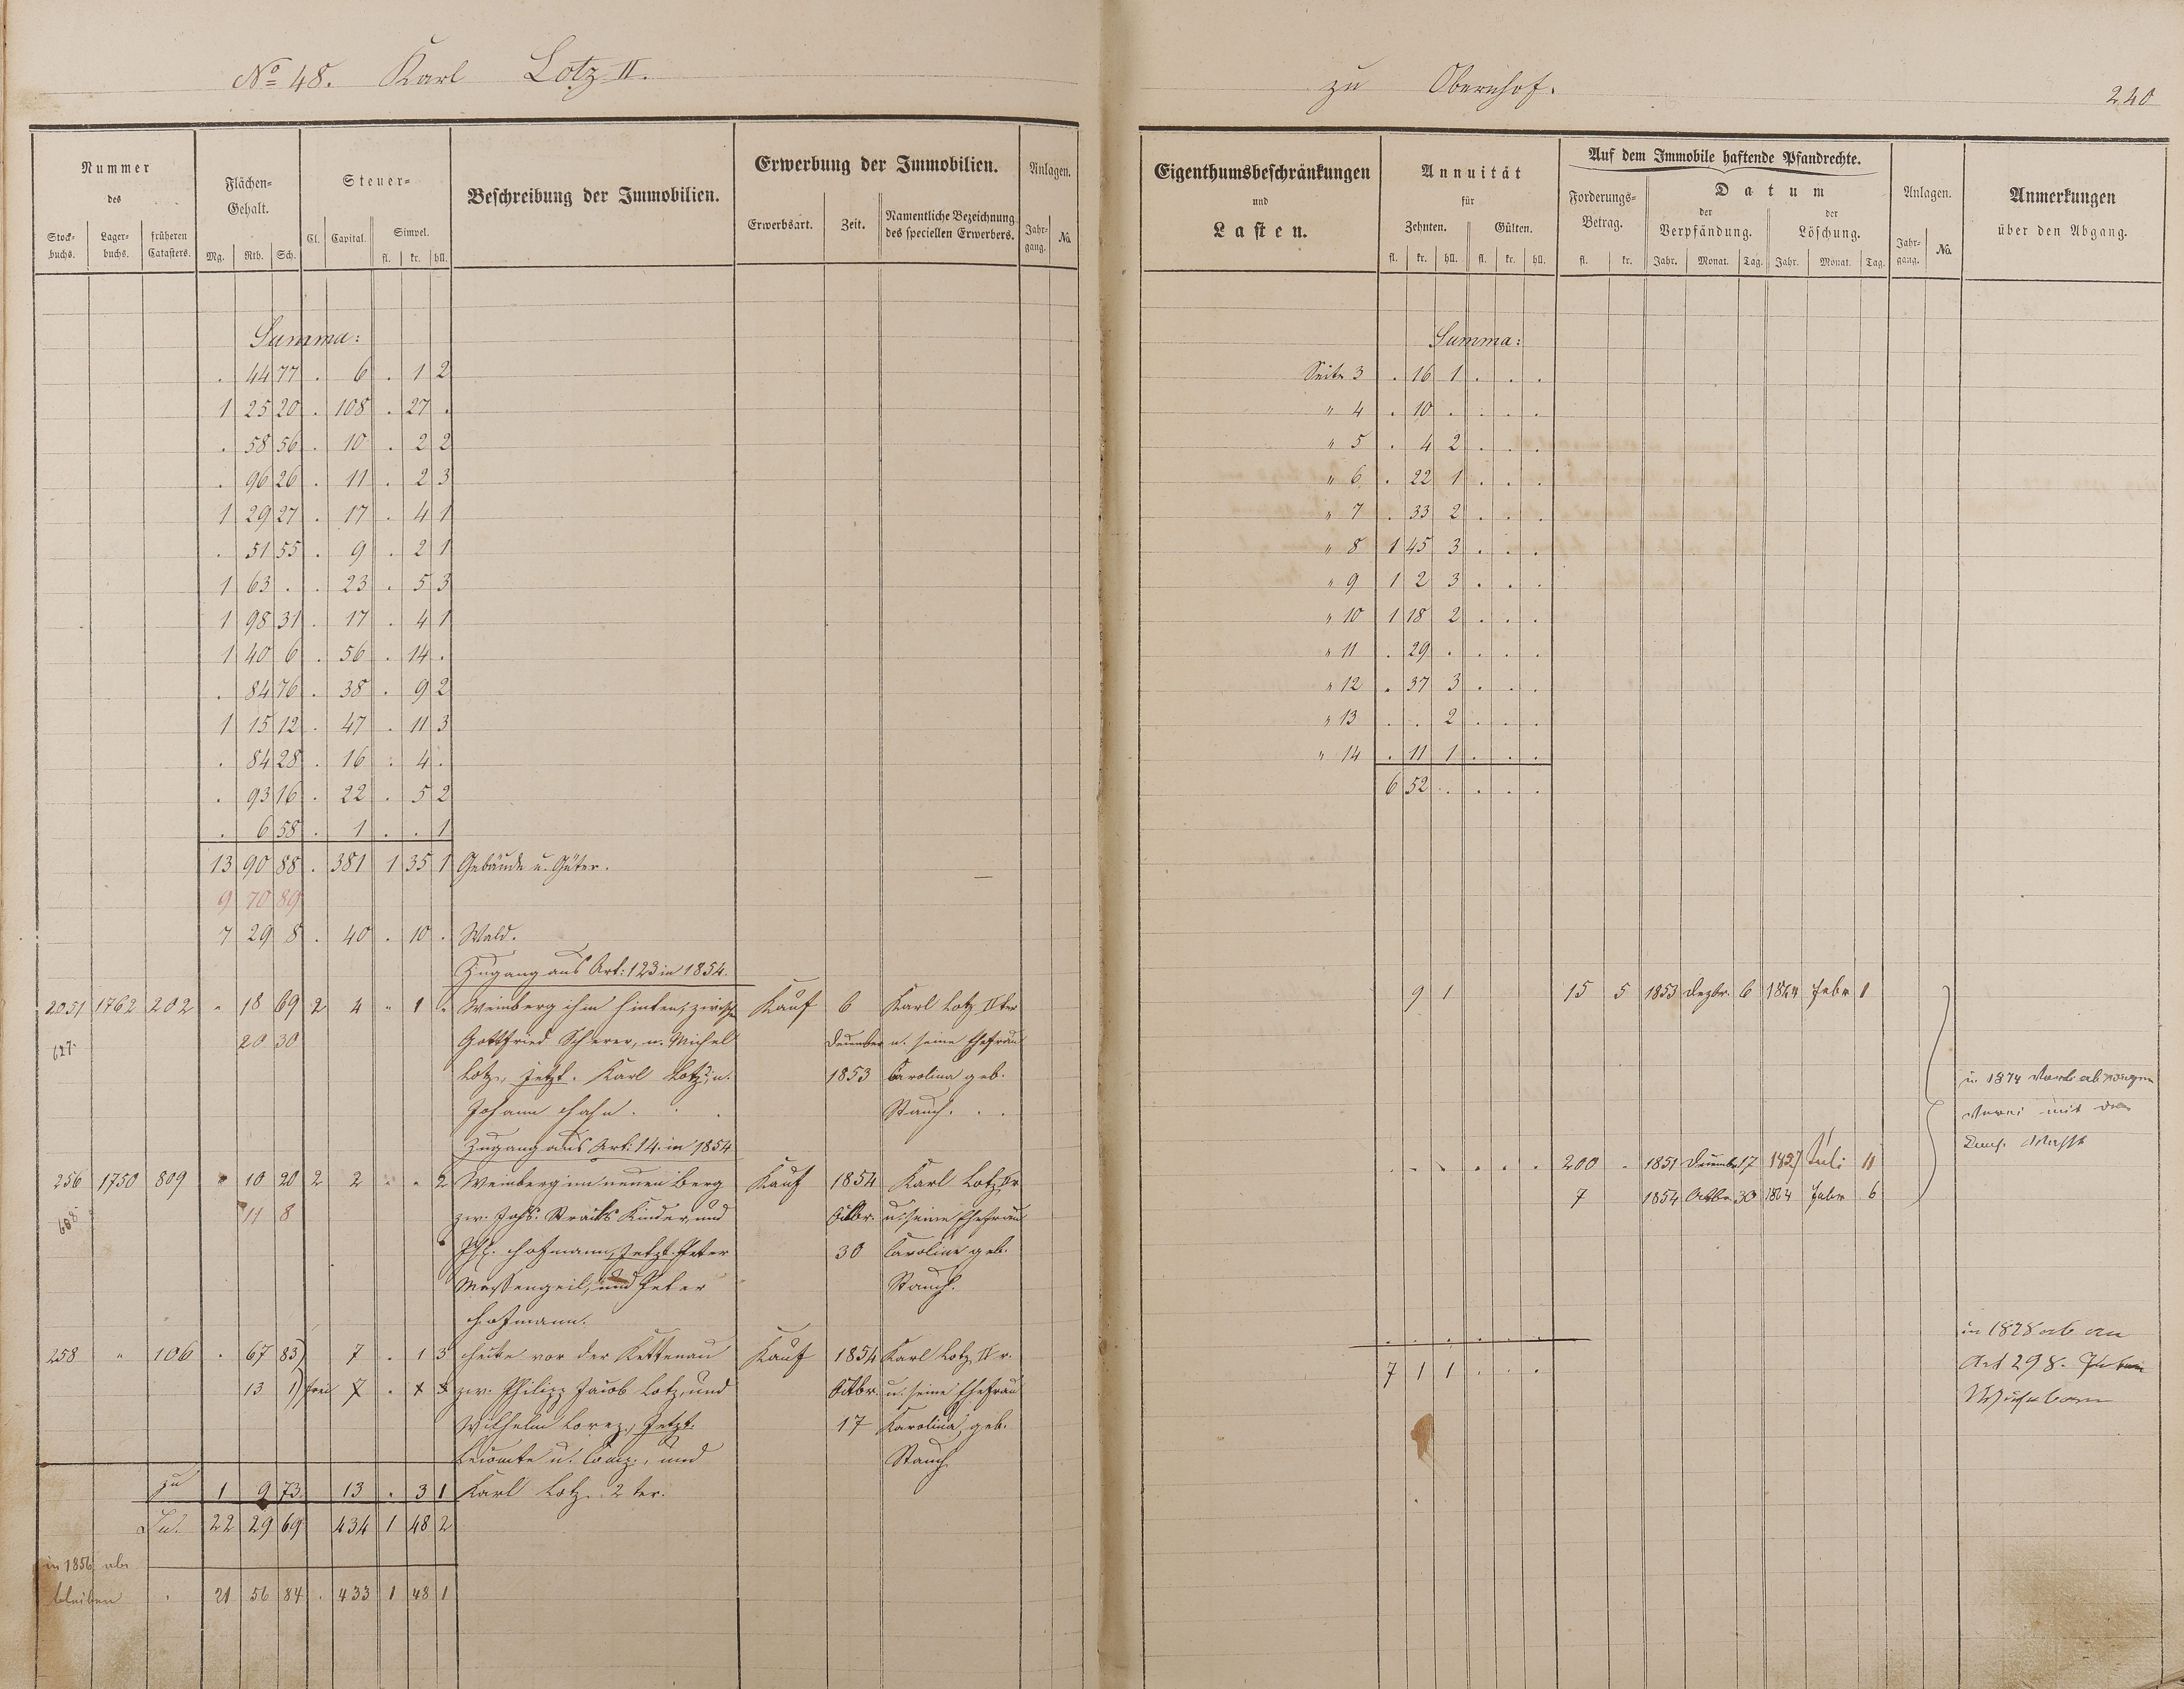 No 48. Karl Lotz II.
zu Obernhof.
240
Nummer
des
Stock-buchs. Lager-buchs. früheren Catasters.
Flächen-Gehalt.
Mg. Rth. Sch.
Steuer-
Cl. Capital. Simpel.
fl. kr. hll.
Beschreibung der Immobilien.
Erwerbung der Immobilien.
Erwerbsart. Zeit. Namentliche Bezeichnung des speciellen Erwerbers.
Anlagen.
Jahr-gang. No.
Summa:
. 44 77 . 6 . 1 2
1 25 20 . 108 . 27 .
. 58 56 . 10 . 2 2
. 96 26 . 11 . 2 3
1 29 27 . 17 . 4 1
. 51 55 . 9 . 2 1
1 63 . . 23 . 5 3
1 98 31 . 17 . 4 1
1 40 6 . 56 . 14 .
. 84 76 . 38 . 9 2
1 15 12 . 47 . 11 3
. 84 28 . 16 . 4 .
. 93 16 . 22 . 5 2
. 6 58 . 1 . . 1
13 90 88 . 381 1 35 1 Gebäude u. Güter.
9 70 89
7 29 8 . 40 . 10 . Wald.
Zugang aus Art: 123 in 1854.
2051 1762 202 " 18 69 2 4 " 1 " Weinberg ihm hinten, zwisch Kauf 6 Karl Lotz IIter
627 20 30 Gottfried Scherer, u. Michel December u. seine Ehefrau
Lotz, jetzt. Karl Lotz, u. 1853 Carolina geb.
Johann Hahn. Stauch.
Zugang aus Art: 14. in 1854
256 1750 809 " 10 20 2 2 " " 2 Weinberg im neuen Berg Kauf 1854 Karl Lotz IIr
608 11 8 zw. Johs. Kinder, und Octbr. u. seine Ehefrau
Phl. Hofmann, Jetzt. Peter 30 Caroline geb.
Massengeil, und Peter Stauch.
Hofmann.
258 " 106 . 67 83 7 . 1 3 Hecke vor der Kettenau Kauf 1854 Karl Lotz IIr.
13 1 frei 7 . 1 3 zw. Philipp Jacob Lotz, und Octbr. u. seine Ehefrau
Wilhelm Lorez, Jetzt. 17 Karolina, geb.
u. Comp., und Stauch
zu 1 9 73 13 . 3 1 Karl Lotz 2 ter.
Su. 22 29 69 434 1 48 2
in 1856 ab
bleiben 21 56 84 . 433 1 48 1
Eigenthumsbeschränkungen
und
Lasten.
Annuität
für
Zehnten. Gülten.
fl. kr. hll. fl. kr. hll.
Auf dem Immobile haftende Pfandrechte.
Forderungs-Betrag.
fl. kr.
Datum
der Verpfändung. der Löschung.
Jahr. Monat. Tag. Jahr. Monat. Tag.
Anlagen.
Jahr-gang. No.
Anmerkungen
über den Abgang.
Summa:
Seite 3 . 16 1 . . .
" 4 . 10 . . . .
" 5 . 4 2 . . .
" 6 . 22 1 . . .
" 7 . 33 2 . . .
" 8 1 45 3 . . .
" 9 1 2 3 . . .
" 10 1 18 2 . . .
" 11 . 29 . . . .
" 12 . 37 3 . . .
" 13 . . 2 . . .
" 14 . 11 1 . . .
6 52 . . . .
9 1 15 5 1853 Dezbr. 6 1864 Febr 1
in 1874
mit
. . . . . . 200 . 1851 December 17 1857 Juli 11
7 1854 Octbr 30 1864 Febr 6
7 1 1 . . .
in 1878 ab an
Art 298.